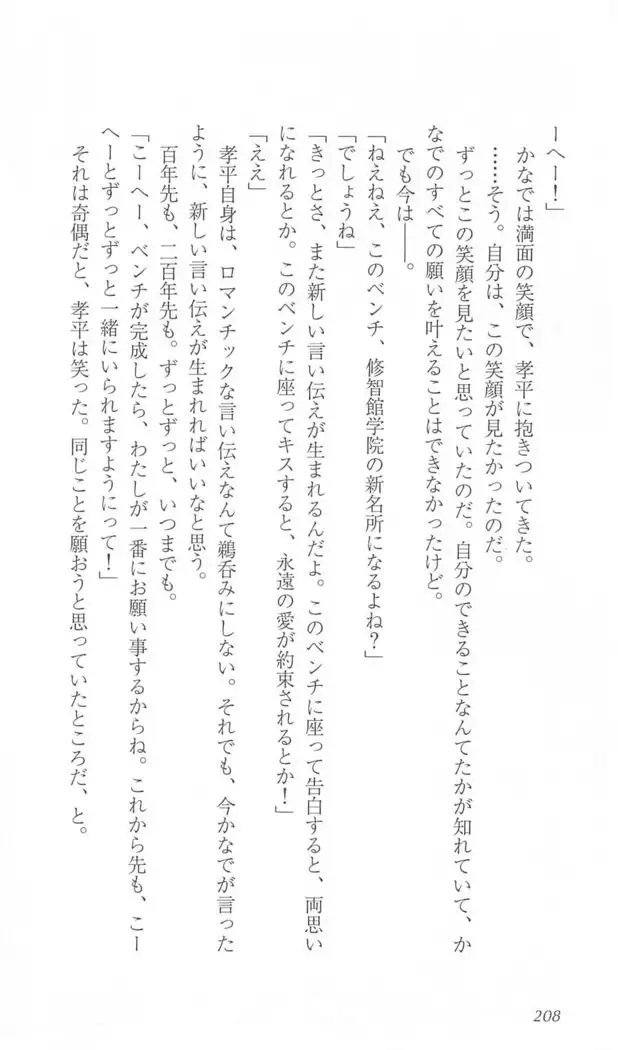 ーへー！」
　かなでは満面の笑顔で、孝平に抱きついてきた。
　……そう。自分は、この笑顔が見たかったのだ。
　ずっとこの笑顔を見たいと思っていたのだ。自分のできることなんてたかが知れていて、か
なでのすべての願いを叶えることはできなかったけど。
　でも今は――。
「ねえねえ、このベンチ、修智館学院の新名所になるよね？」
「でしょうね」
「きっとさ、また新しい言い伝えが生まれるんだよ。このベンチに座って告白すると、両思い
になれるとか。このベンチに座ってキスすると、永遠の愛が約束されるとか！」
「ええ」
　孝平自身は、ロマンチックな言い伝えなんて鵜呑みにしない。それでも、今かなでが言った
ように、新しい言い伝えが生まれればいいなと思う。
　百年先も、二百年先も。ずっとずっと、いつまでも。
「こーへー、ベンチが完成したら、わたしが一番にお願い事するからね。これから先も、こー
へーとずっとずっと一緒にいられますようにって！」
　それは奇偶だと、孝平は笑った。同じことを願おうと思っていたところだ、と。
208